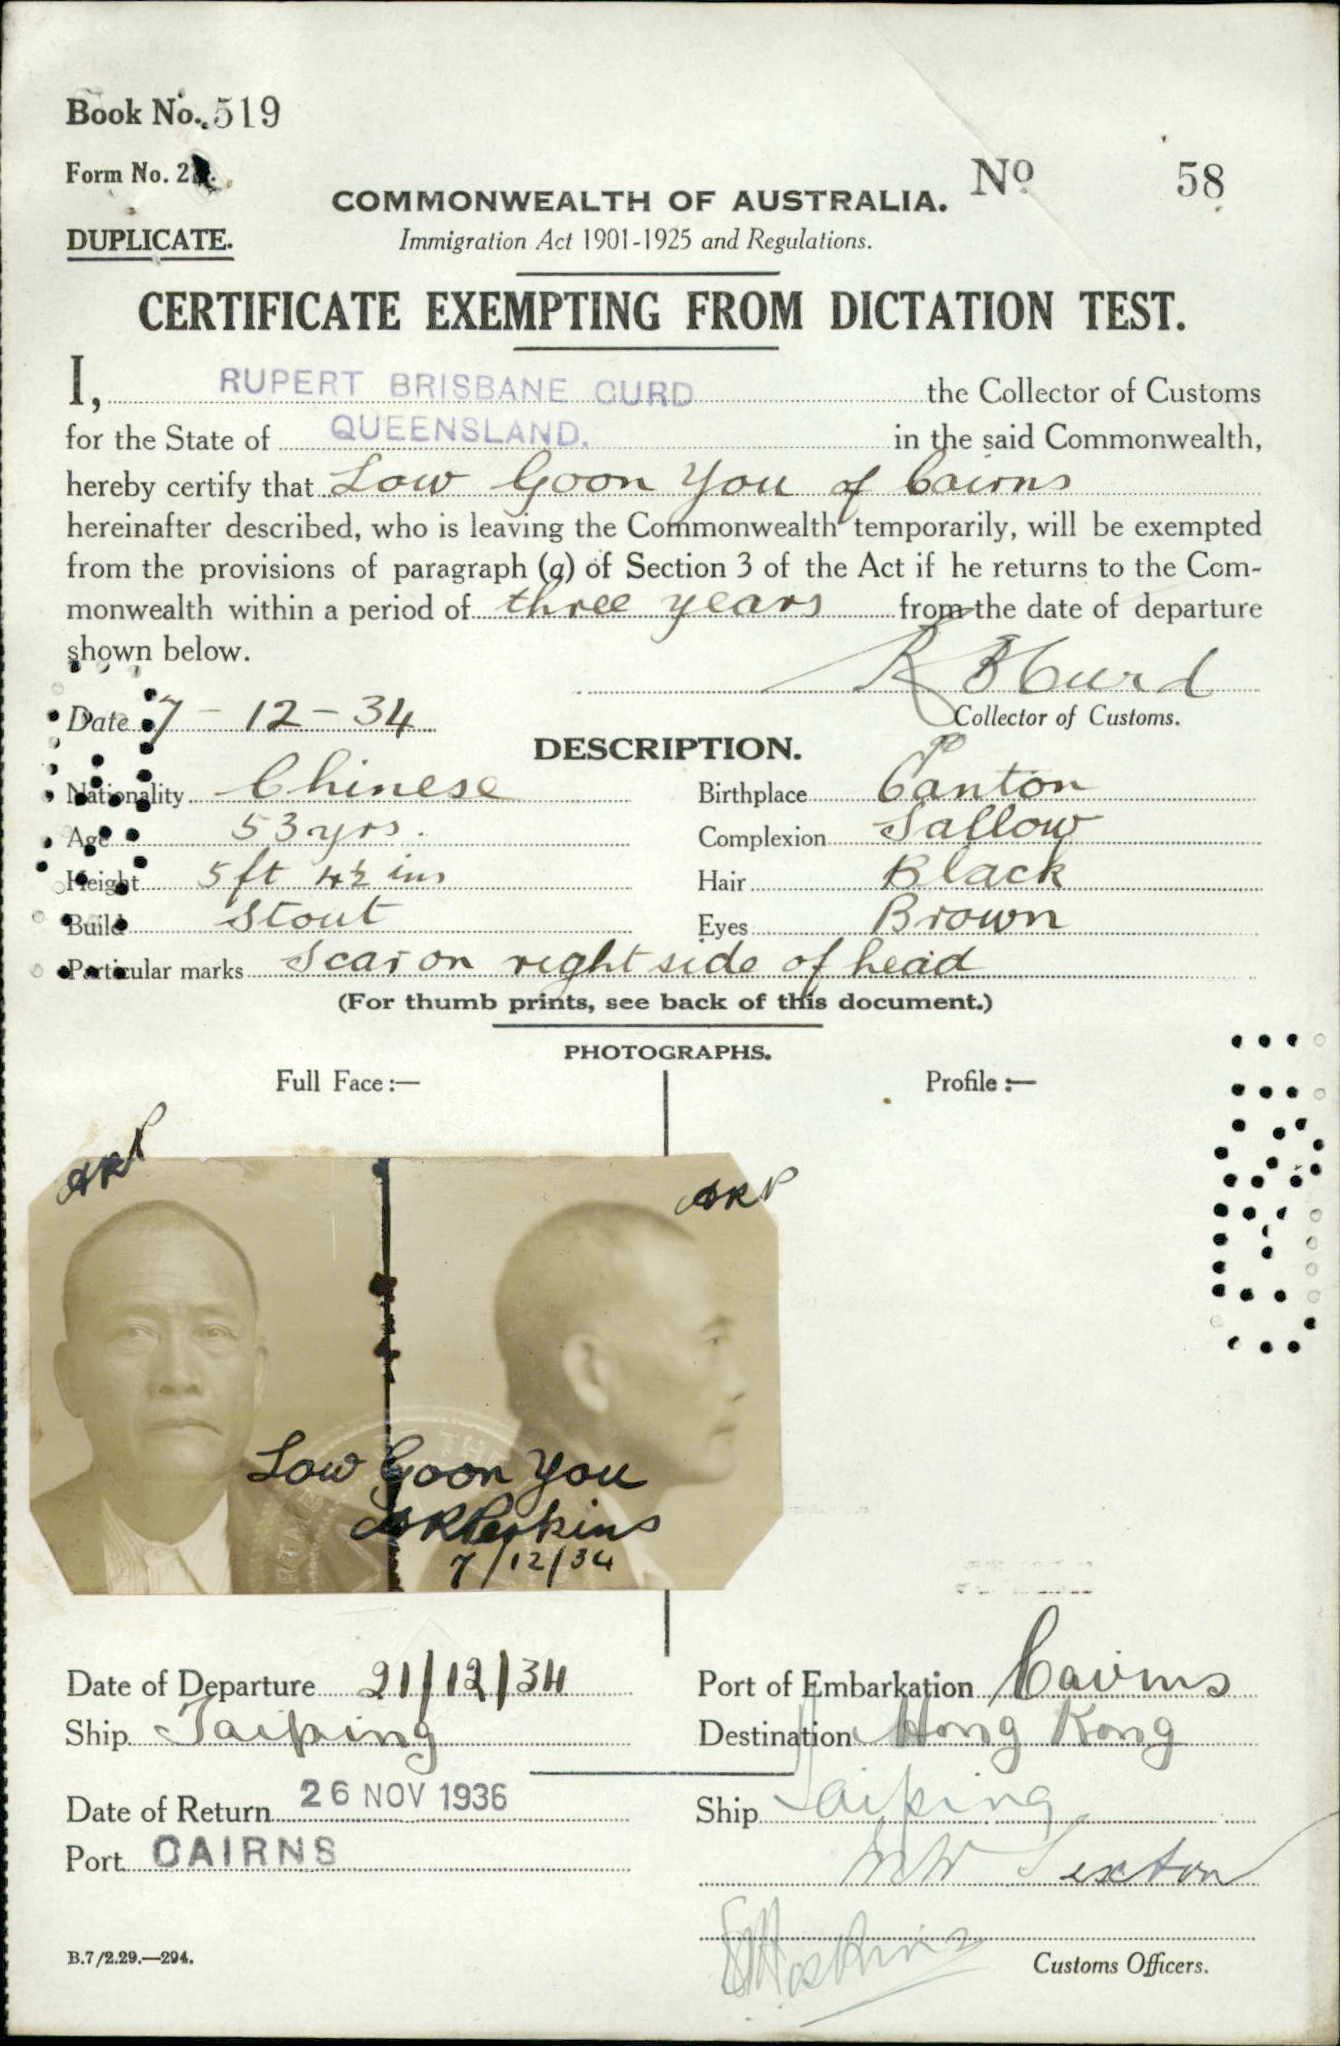 Book No. 519
Form No. 2
Nº 58
COMMONWEALTH OF AUSTRALIA.
DUPLICATE.
Immigration Act 1901-1925 and Regulations.
CERTIFICATE EXEMPTING FROM DICTATION TEST.
I, RUPERT BRISBANE CURD the Collector of Customs
for the State of QUEENSLAND. in the said Commonwealth,
hereby certify that Low Goon You of Cairns
hereinafter described, who is leaving the Commonwealth temporarily, will be exempted
from the provisions of paragraph (a) of Section 3 of the Act if he returns to the Com-
monwealth within a period of three years from the date of departure
shown below.
R B Curd
Date 7-12-34
Collector of Customs.
DESCRIPTION.
Nationality Chinese Birthplace Canton
Age 53 yrs. Complexion Sallow
Height 5 ft 4½ ins Hair Black
Build Stout Eyes Brown
Particular marks Scar on right side of head
(For thumb prints, see back of this document.)
PHOTOGRAPHS.
Full Face :— Profile :—
ARP ARP
Low Goon You
7/12/34
Date of Departure 21/12/34 Port of Embarkation Cairns
Ship Taiping Destination Hong Kong
Date of Return 26 NOV 1936 Ship Taiping
Port CAIRNS
Sexton
B.7/2.29.—294.
Customs Officers.